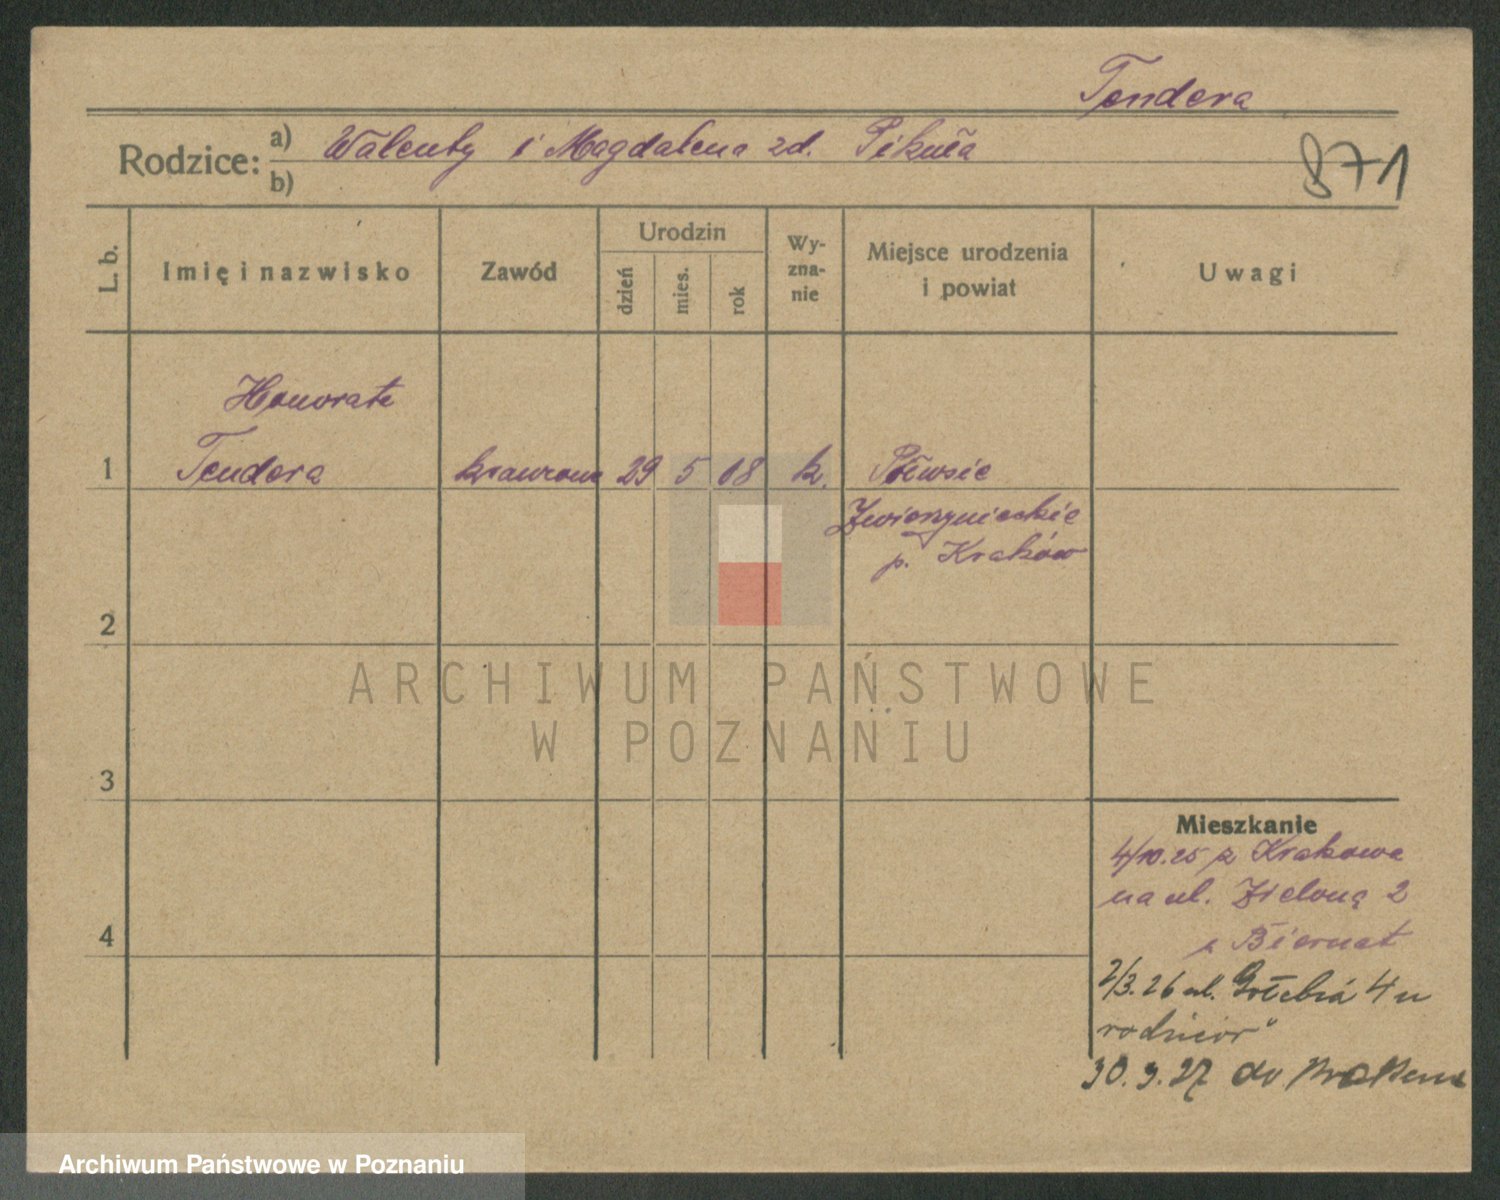 Tendera
Rodzice: a) Walenty i Magdalena zd. Pikuła
b)
871
L. b.
Imię i nazwisko
Zawód
Urodzin
dzień
mies.
rok
Wy-
zna-
nie
Miejsce urodzenia
i powiat
Uwagi
Honorata
1 Tendera krawcowa 29 5 08 k. Półwsie
Zwierzynieckie
p. Kraków
2
3
4
Mieszkanie
4/10.25 z Krakowa
na ul. Zieloną 2
Biernat
2/3.26 ul. Gołebia 4 u
rodziców
30.9.27 do Krakowa
ARCHIWUM PAŃSTWOWE
W POZNANIU
Archiwum Państwowe w Poznaniu